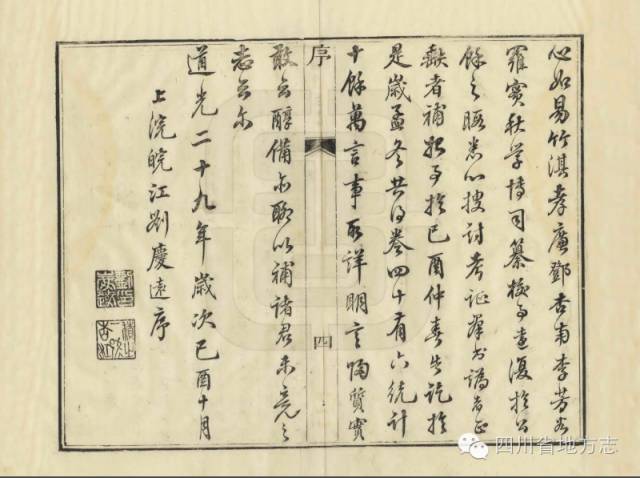 心如易竹淇孝廉鄧杏甫李芳谷
羅實秋學博司纂校事遠復於公
餘之暇悉心搜討考證群書譌者正
缺者補始事於己酉仲春告訖於
是歲孟冬共得卷四十有六統計
十餘萬言事取詳明言歸質實
序
四
敢云醇備亦聊以補諸君未竟之
志云尔
道光二十九年歲次己酉十月
上浣皖江劉慶遠序
四川省地方志